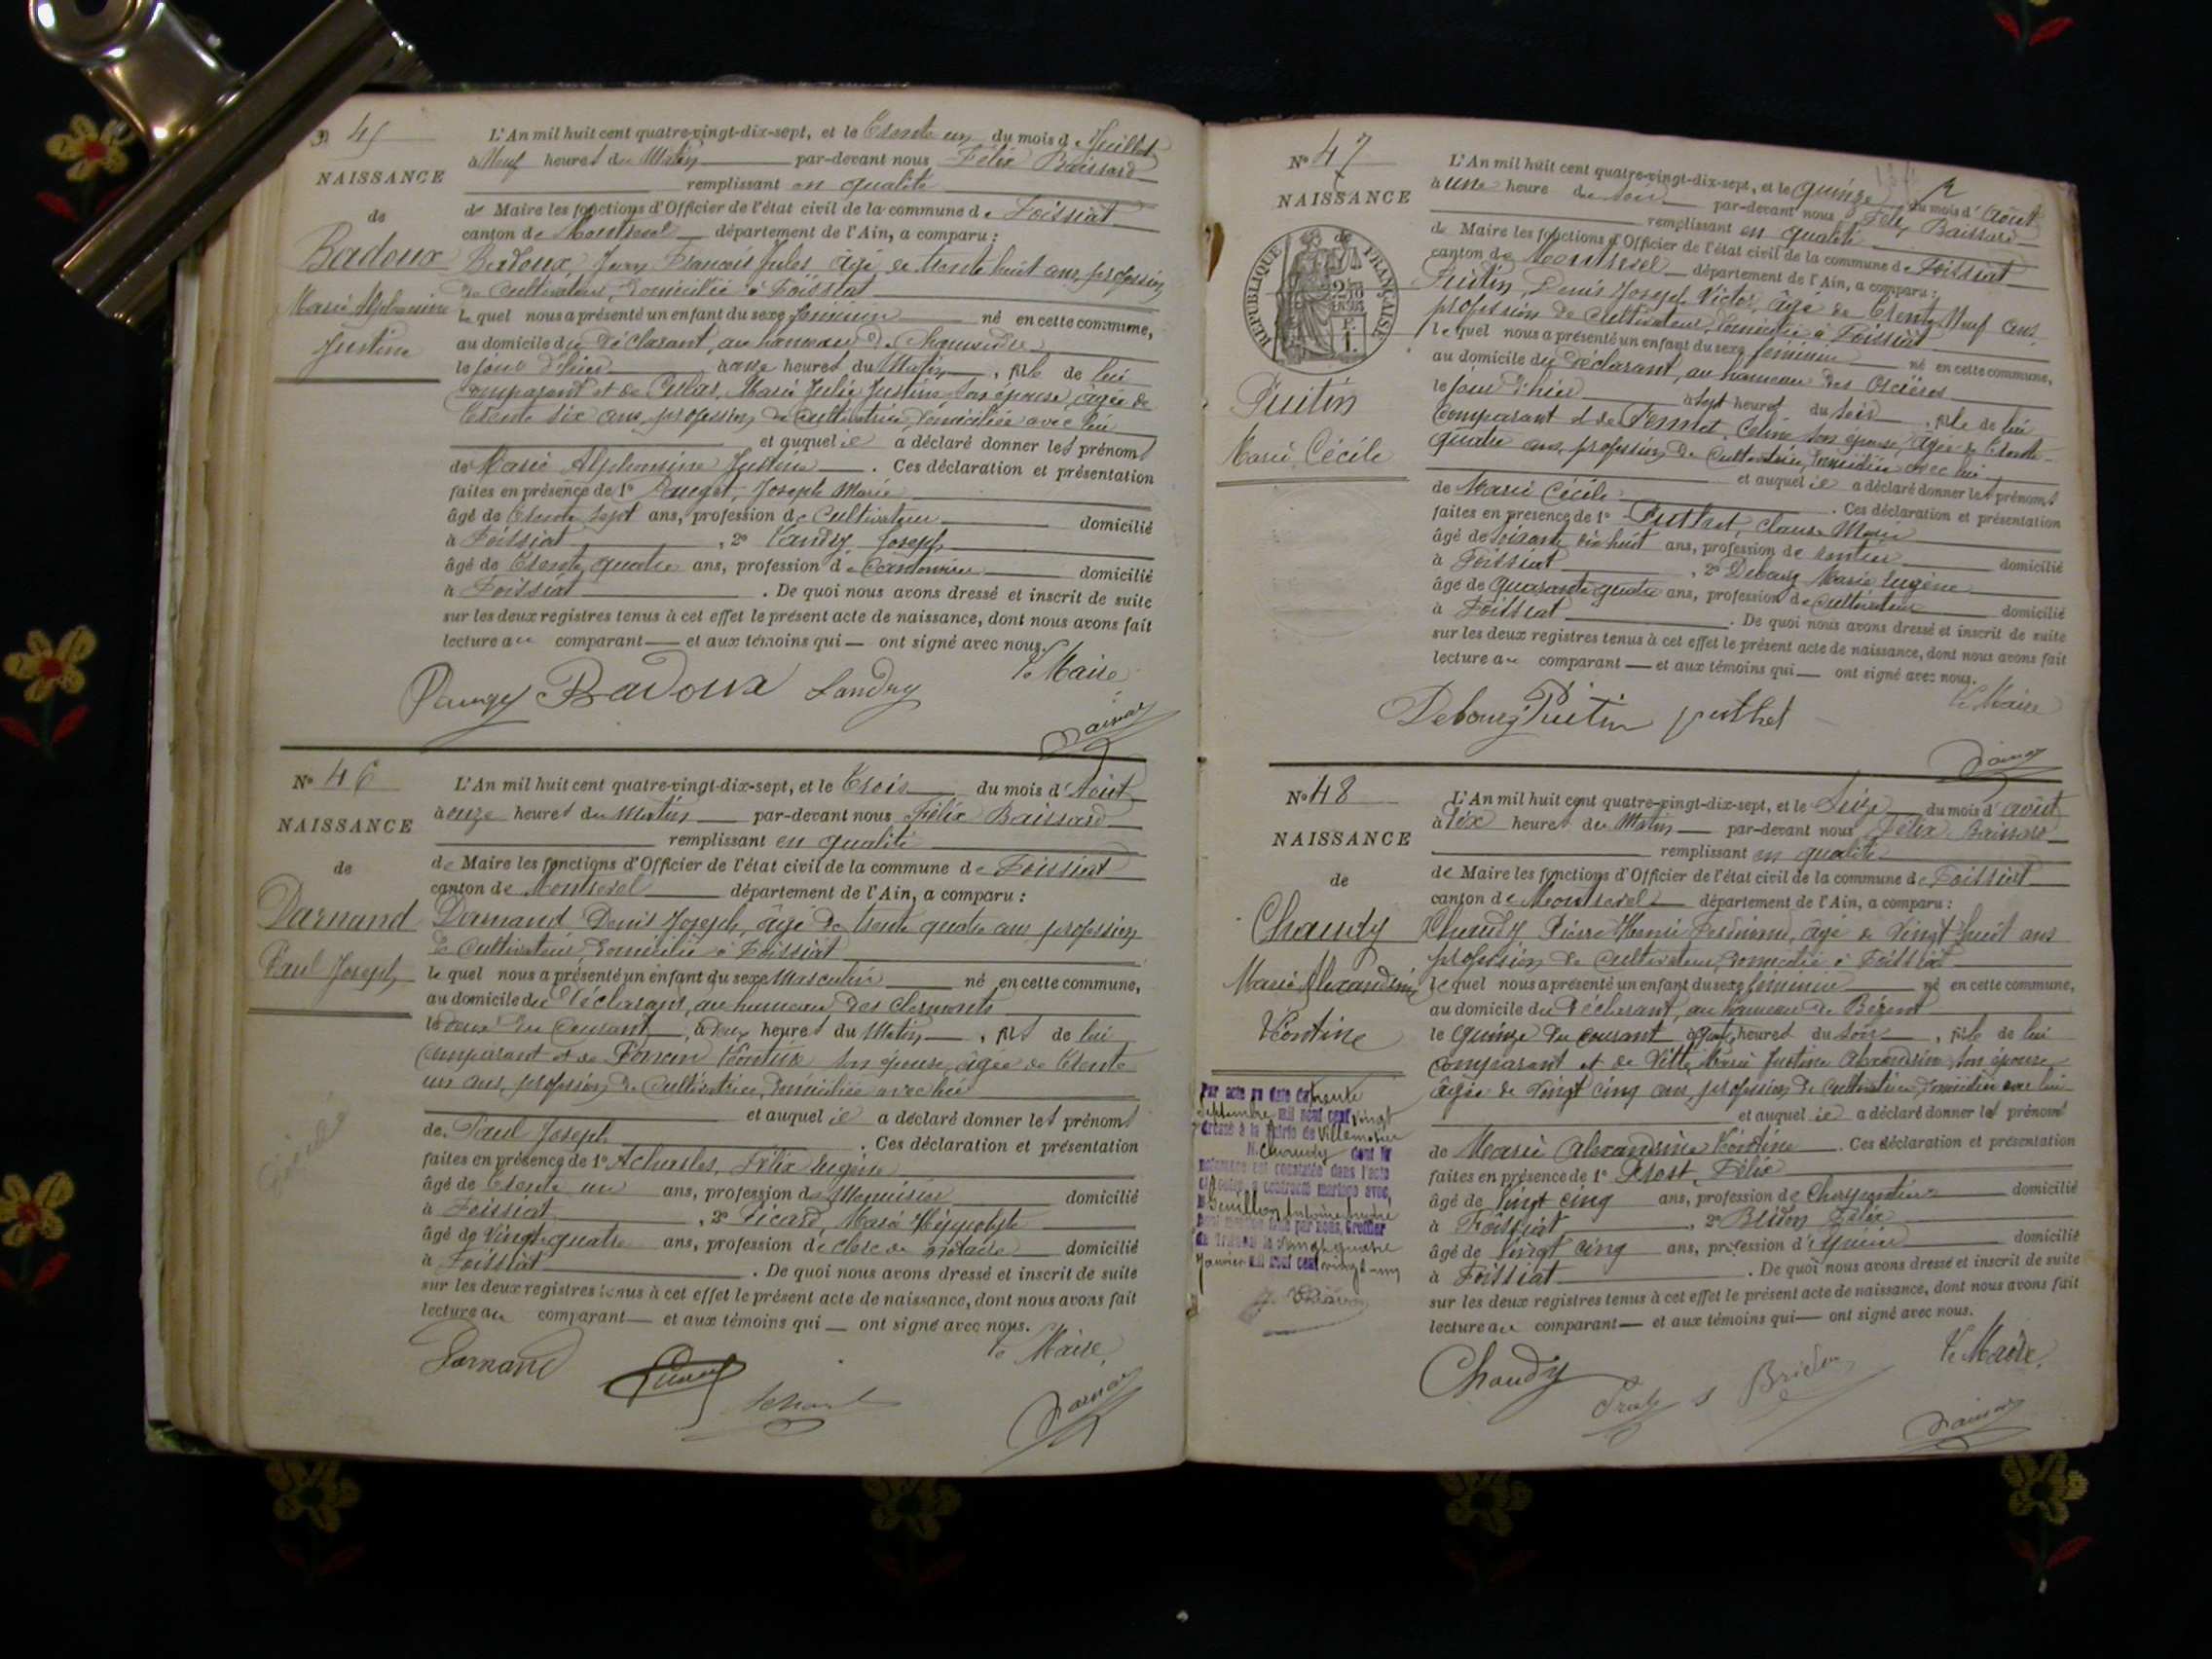 N° 45
NAISSANCE
de
Badoux
Marie Alphonsine
Justine
L'An mil huit cent quatre-vingt-dix-sept, et le Trente un du mois de Juillet
à Neuf heures du Matin par-devant nous Félix Baissard
remplissant en qualité
de Maire les fonctions d'Officier de l'état civil de la commune de Foissiat
canton de Montrevel département de l'Ain, a comparu :
Badoux, Jean François Jules âgé de trente huit ans, profession
de Cultivateur, domicilié à Foissiat
le quel nous a présenté un enfant du sexe féminin né en cette commune,
au domicile du déclarant, au hameau de
le jour d'hier à onze heures du Matin, fille de lui
comparant et de Marie Julie Justine son épouse, âgée de
Trente six ans, profession de Cultivatrice, domiciliée avec lui
et auquel il a déclaré donner les prénoms
de Marie Alphonsine Justine. Ces déclaration et présentation
faites en présence de 1° Joseph Marie
âgé de trente sept ans, profession de Cultivateur domicilié
à Foissiat, 2° Landry Joseph
âgé de Trente quatre ans, profession de Cantonnier domicilié
à Foissiat. De quoi nous avons dressé et inscrit de suite
sur les deux registres tenus à cet effet le présent acte de naissance, dont nous avons fait
lecture au comparant et aux témoins qui ont signé avec nous.
Le Maire
Badoux Landry
N° 46
NAISSANCE
de
Darnand
Paul Joseph
L'An mil huit cent quatre-vingt-dix-sept, et le Trois du mois d'Août
à onze heures du Matin par-devant nous Félix Baissard
remplissant en qualité
de Maire les fonctions d'Officier de l'état civil de la commune de Foissiat
canton de Montrevel département de l'Ain, a comparu :
Darnand Denis Joseph, âgé de trente quatre ans profession
de Cultivateur, domicilié à Foissiat
le quel nous a présenté un enfant du sexe Masculin né en cette commune,
au domicile du Déclarant, au hameau des Clermonts
le deux du Courant, à deux heures du Matin, fils de lui
comparant et de son épouse, âgée de Trente
un ans, profession de Cultivatrice, domiciliée avec lui
et auquel il a déclaré donner les prénoms
de Paul Joseph. Ces déclaration et présentation
faites en présence de 1° Félix Eugène
âgé de Trente un ans, profession de Menuisier domicilié
à Foissiat, 2° Picard, Marie Hippolyte
âgé de Vingt quatre ans, profession de clerc de notaire domicilié
à Foissiat. De quoi nous avons dressé et inscrit de suite
sur les deux registres tenus à cet effet le présent acte de naissance, dont nous avons fait
lecture au comparant et aux témoins qui ont signé avec nous.
Le Maire,
Darnand
N° 47
NAISSANCE
de
RÉPUBLIQUE FRANÇAISE
Puitin
Marie Cécile
L'An mil huit cent quatre-vingt-dix-sept, et le quinze du mois d'Août
à une heure du soir par-devant nous Félix Baissard
remplissant en qualité
de Maire les fonctions d'Officier de l'état civil de la commune de Foissiat
canton de Montrevel département de l'Ain, a comparu :
Puitin, Denis Joseph Victor, âgé de Trente Neuf ans
profession de Cultivateur, domicilié à Foissiat
le quel nous a présenté un enfant du sexe féminin né en cette commune,
au domicile du Déclarant, au hameau des
le jour d'hier à sept heures du soir, fille de lui
comparant et de Céline son épouse, âgée de Trente
quatre ans, profession de Cultivatrice, domiciliée avec lui
et auquel il a déclaré donner les prénoms
de Marie Cécile. Ces déclaration et présentation
faites en présence de 1° Puthet, Claude Marie
âgé de soixante dix huit ans, profession de rentier domicilié
à Foissiat, 2° Debourg Marie Eugène
âgé de Quarante quatre ans, profession de Cultivateur domicilié
à Foissiat. De quoi nous avons dressé et inscrit de suite
sur les deux registres tenus à cet effet le présent acte de naissance, dont nous avons fait
lecture au comparant et aux témoins qui ont signé avec nous.
Le Maire
Debourg Puitin puthet
N° 48
NAISSANCE
de
Chaudy
Marie Alexandrine
Léontine
L'An mil huit cent quatre-vingt-dix-sept, et le Seize du mois d'Août
à Six heures du Matin par-devant nous Félix Baissard
remplissant en qualité
de Maire les fonctions d'Officier de l'état civil de la commune de Foissiat
canton de Montrevel département de l'Ain, a comparu :
Chaudy Pierre Henri Ferdinand, âgé de Vingt huit ans
profession de Cultivateur, domicilié à Foissiat
le quel nous a présenté un enfant du sexe féminin né en cette commune,
au domicile du Déclarant, au hameau de
le quinze du courant à heures du soir, fille de lui
comparant et de Marie Justine Alexandrine, son épouse
âgée de Vingt cinq ans, profession de cultivatrice, domiciliée avec lui
et auquel il a déclaré donner les prénoms
de Marie Alexandrine Léontine. Ces déclaration et présentation
faites en présence de 1° Prost, Félix
âgé de Vingt cinq ans, profession de Charpentier domicilié
à Foissiat, 2° Bridon Félix
âgé de Vingt cinq ans, profession d' domicilié
à Foissiat. De quoi nous avons dressé et inscrit de suite
sur les deux registres tenus à cet effet le présent acte de naissance, dont nous avons fait
lecture au comparant et aux témoins qui ont signé avec nous.
Le Maire,
Chaudy Bridon
Par acte en date du trente
Septembre mil neuf cent vingt
dressé à la Mairie de Villemotier
Chaudy dont la
naissance est constatée dans l'acte
ci-contre, a contracté mariage avec
Greffier
vingt quatre
Janvier mil neuf cent vingt-un